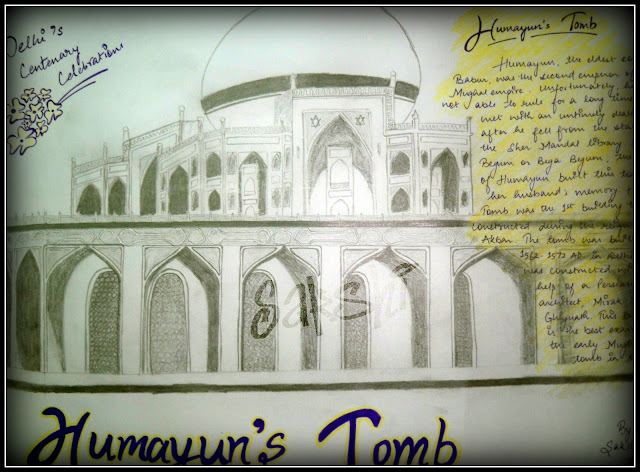 Delhi's
Centenary
Celebrations
Humayun's Tomb
Humayun, the eldest
Babur, was the second emperor
Mughal empire. Unfortunately,
not able to rule for a long time
met with an untimely
after he fell from the
the Sher Mandal library
Begum or Bega Begum, the
of Humayun built this
her husband's memory
Tomb was the 1st building
constructed during the
Akbar. The tomb was
1562 1572 AD in Delhi
was constructed
help of a Persian
architect, Mirak
Ghiyath. This
is the best
the early
tomb in
Sakshi
By
Humayun's Tomb